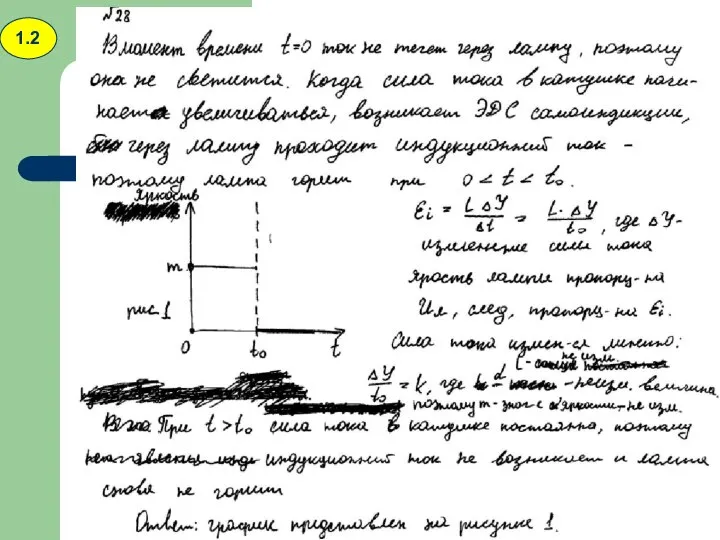 1.2
№28
В момент времени t=0 ток не течет через лампу, поэтому
она не светится. Когда сила тока в катушке начи-
нает увеличиваться, возникает ЭДС самоиндикции,
через лампу проходит индукционный ток -
поэтому лампа горит при 0 < t < t₀.
Яркость
m
рис.1
0 t₀ t
Ei = LΔY/Δt = L·ΔY/t₀, где ΔY-
изменение силы тока
ярость лампы пропорц-на
Iил, след, пропорц-на Ei.
Сила тока измен-ся линейно:
L - не изм.
ΔY/t₀ = k, где d - неизм. величина.
поэтому m - яркости - не изм.
При t>t₀ сила тока в катушке постоянна, поэтому
индукционный ток не возникает и лампа
снова не горит
Ответ: график представлен на рисунке 1.